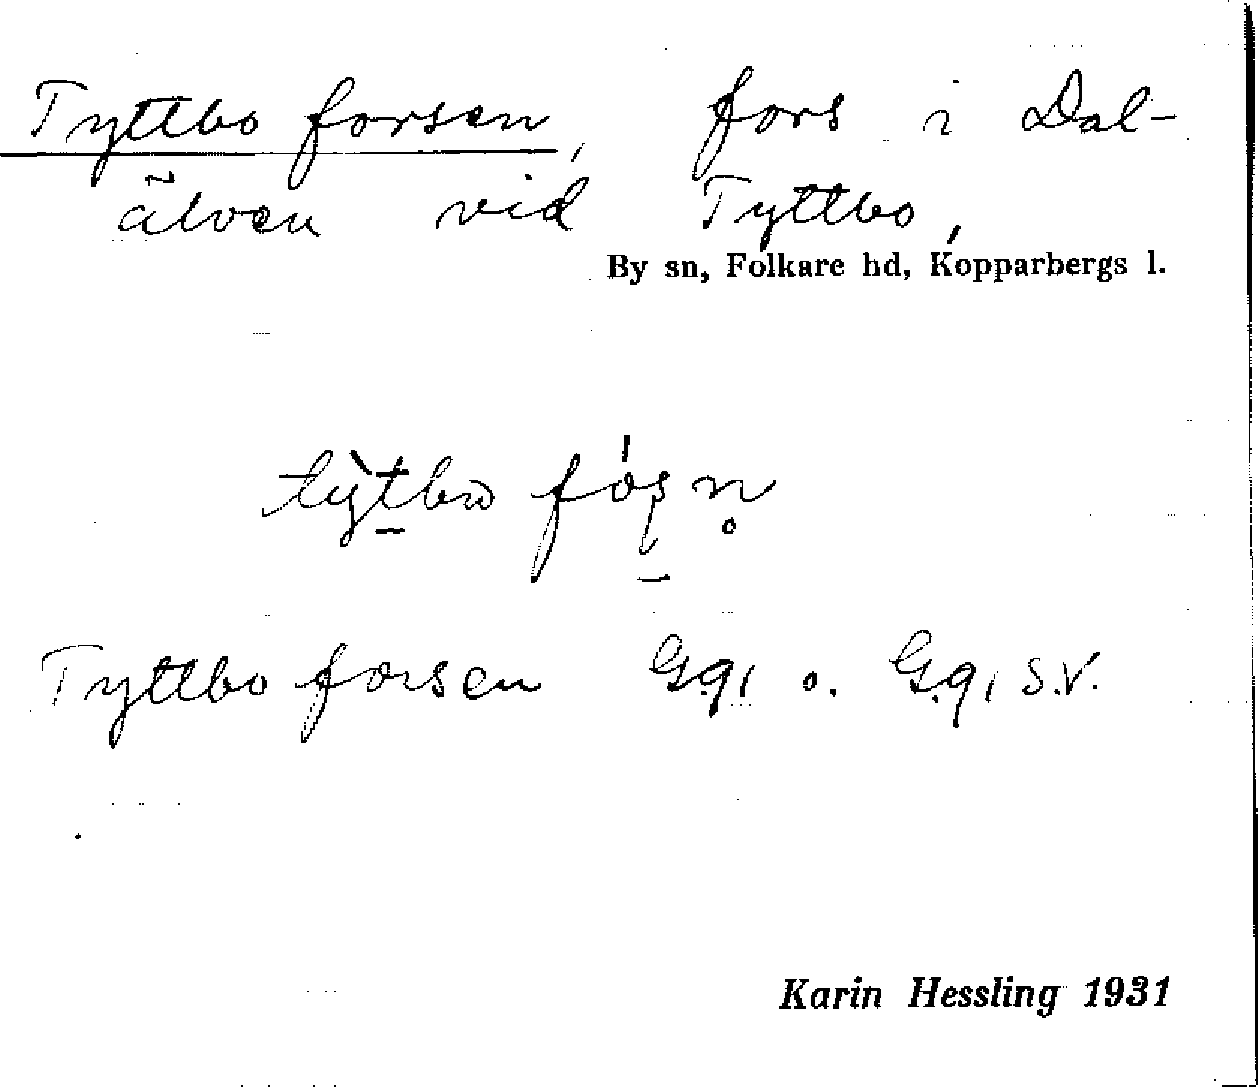 Tyttbo forsen, fors i Dal-
älven vid Tyttbo,
By sn, Folkare hd, Kopparbergs l.
Tyttbo forsen Gqi o. Gqi S.V.
Karin Hessling 1931